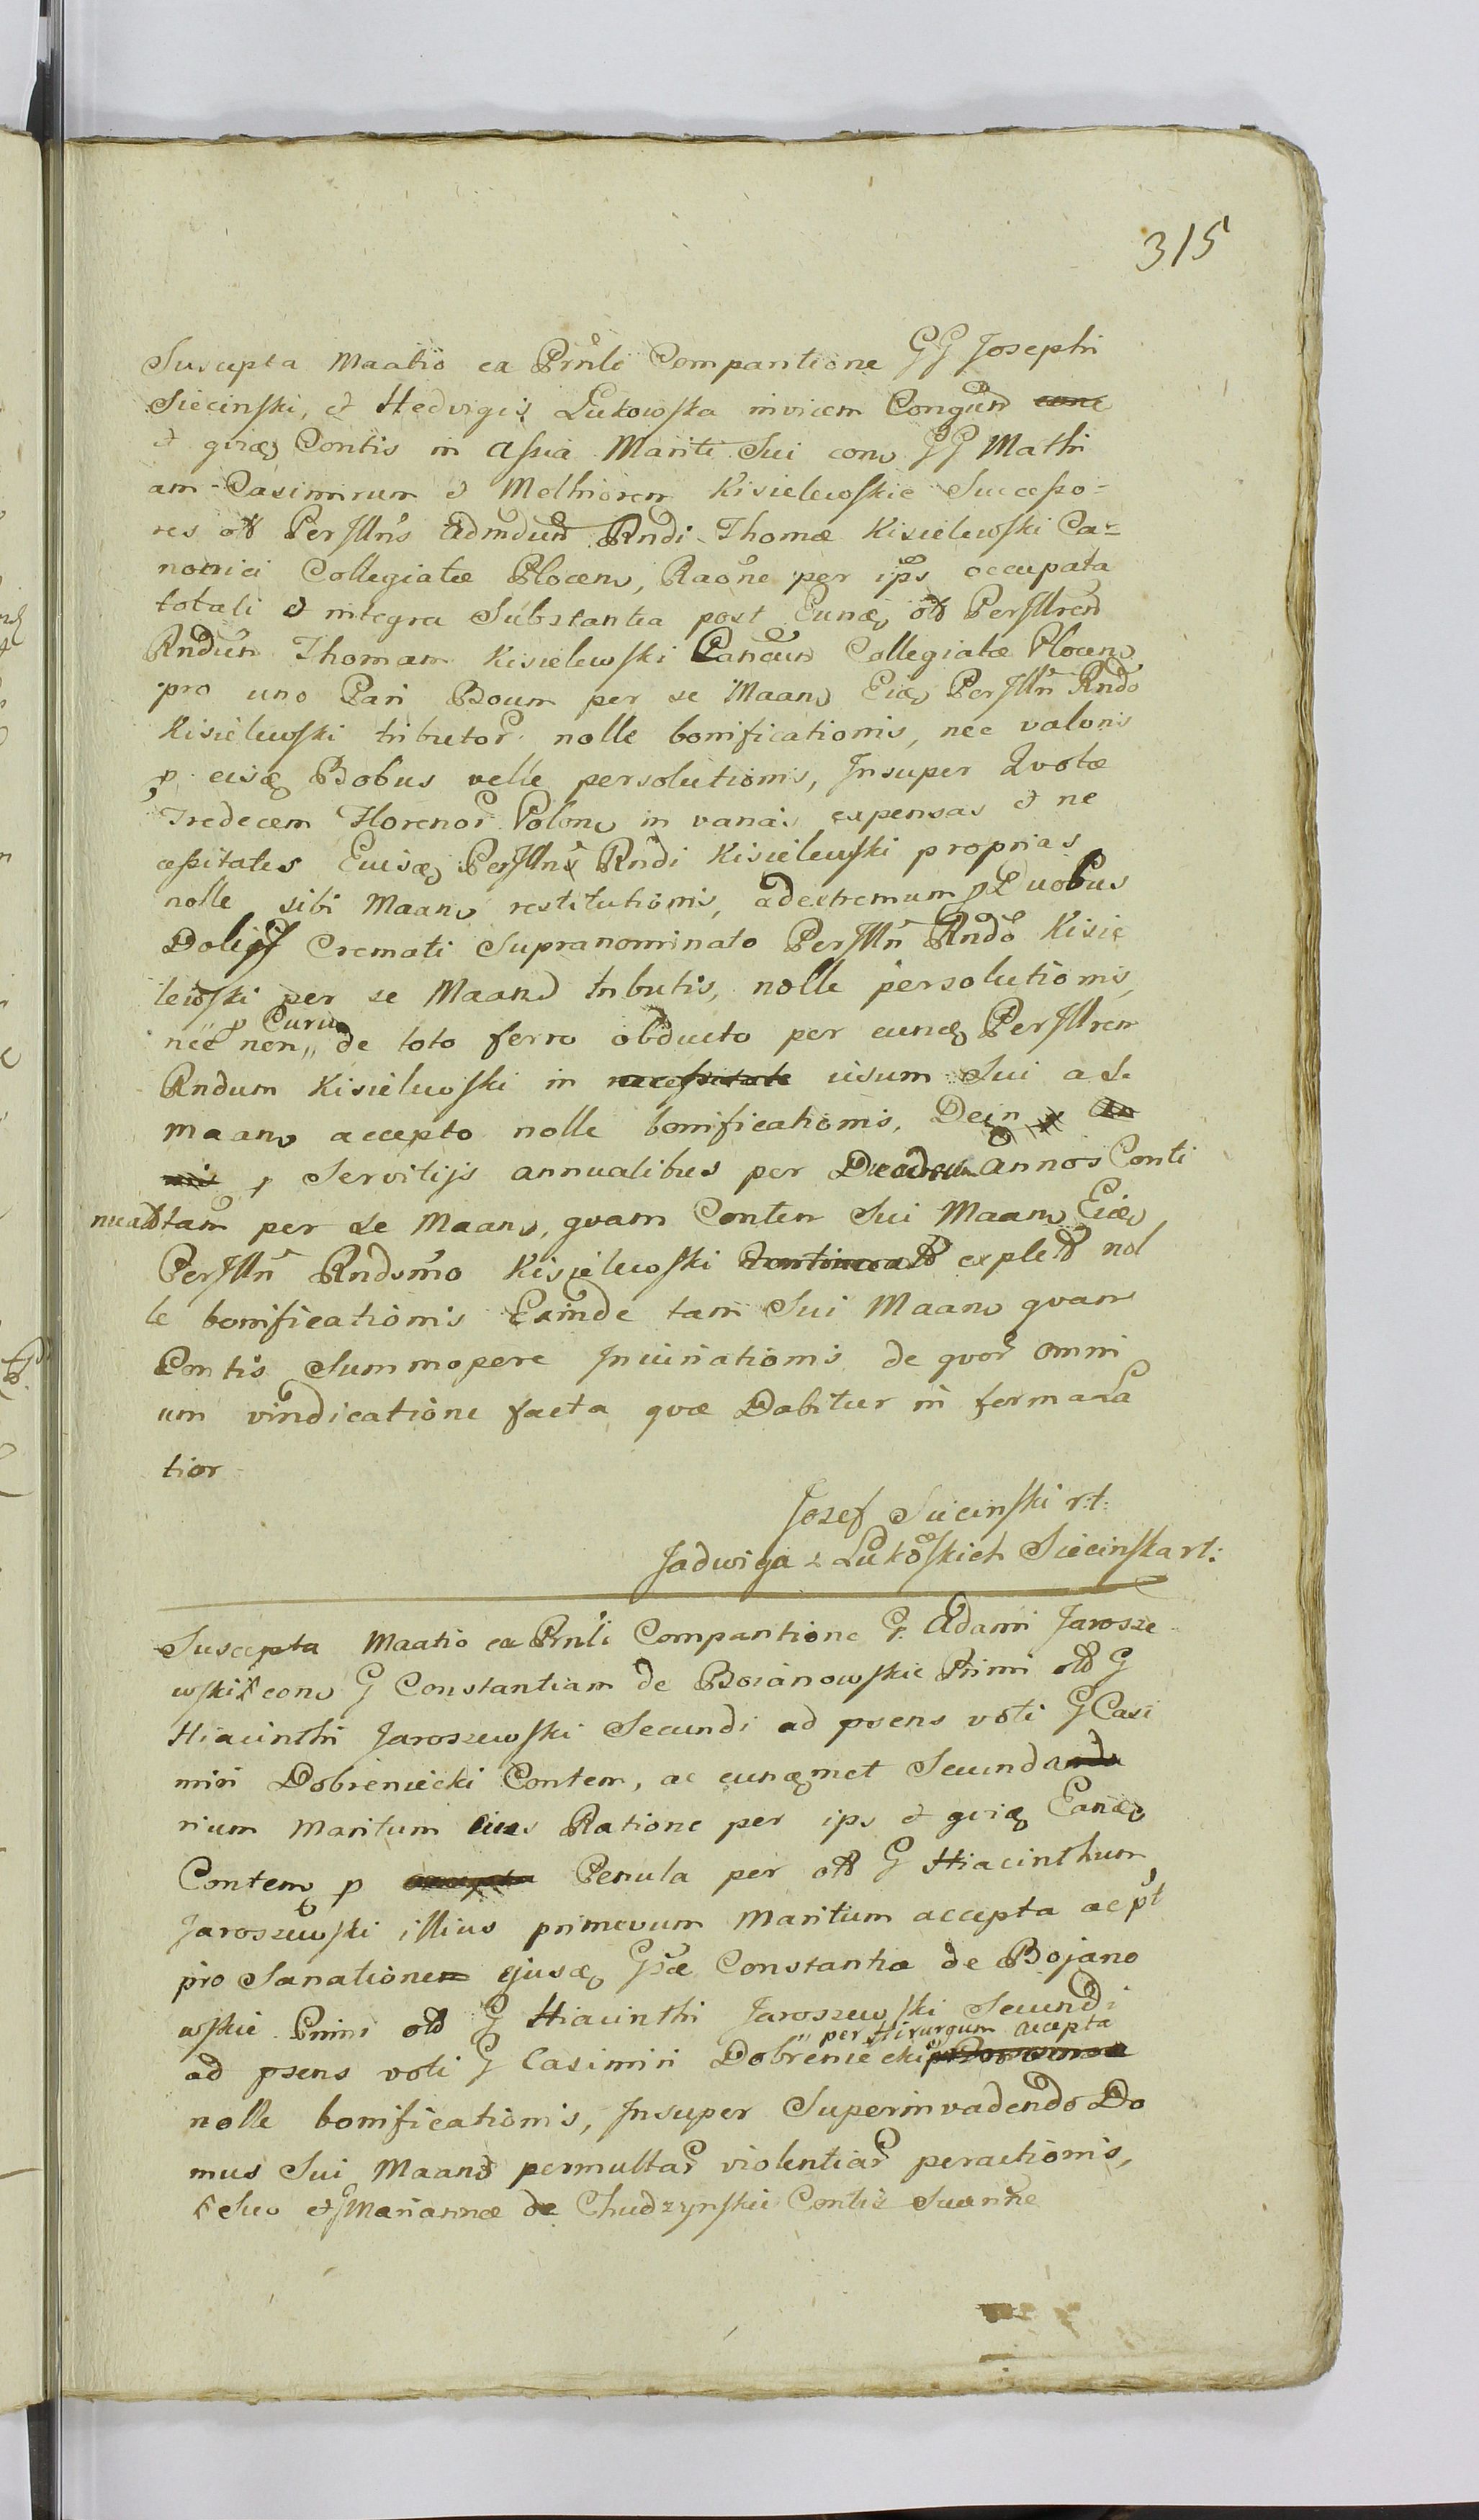 315
Suscepta Maatio ea Prnli Comparitione GG Josephi
Siecinski, et Hedvigis Łukowska invicem Congum conc
et gvias Contis in Assia Mariti Sui con GG Mathi
am Casimirum et Melhiorem Kisielewskie Successo=
res olt Perjllris Admdum Rndi Thomæ Kisielewski Ca=
nonici Collegiatæ Plocen, Raone per ips occupata
totali et integra Substantia post Eunq olt Perjllrem
Rndum Thomam Kisielewski Cancum Collegiatæ Plocen
pro uno Pari Boum per se Maan Eidq Perjllri Rndo
Kisielewski tributor nolle bonificationis, nec valoris
p eisq Bobus velle persolutionis, Insuper Qvotæ
Tredecem Florenor Polon in varias expensas et ne
cessitates Euisq Perjllris Rndi Kisielewski proprias
nolle sibi Maan restitutionis, adextremum p Duobus
Dolijs Cremati Supranominato Perjllri Rndo Kisie
lewski per se Maan tributis, nolle persolutionis,
nec non,, p Curru de toto ferro obducto per eunq Perjllrem
Rndum Kisielewski in necessitate usum Sui a se
maan accepto nolle bonificationis, Dein p an
nis p Servitijs annualibus per annos Conti
nuatt tam per se Maan, qvam Contem Sui Maan Eidq
Perjllri Rndsmo Kisielewski Continuatt explett nol
le bonificationis Exinde tam Sui Maan qvam
Contis Summopere Iniuriationis de qvor omni
um vindicatione facta qvæ Dabitur in forma La
tior
Jozef Siecinski r:t:
Jadwiga z Łukoskich Siecinska rt:
Suscepta Maatio ea Prnli Comparitione G: Adami Jarosze
wski con G Constantiam de Boianowskie Primi olt G
Hiacinthi Jaroszewski Secundi ad psens voti G Casi
miri Dobreniecki Contem, ac eunqmet Secundando
rium Maritum eius Ratione per ips et gviq Eanq
Contem p accepta Penula per olt G Hiacinthum
Jaroszewski illius primevum Maritum accepta ac pt
pro Sanatione ejusq Gsæ Constantiæ de Bojano
wskie Primi olt G Hiacinthi Jaroszewski Secundi
ad psens voti G Casimiri Dobreniecki per Hirurgum accepta
nolle bonificationis, Insuper Superinvadendo Do
mus Sui Maan permultar violentiar peractionis,
Suo et G Mariannæ de Chudzynskie Contis Suarine